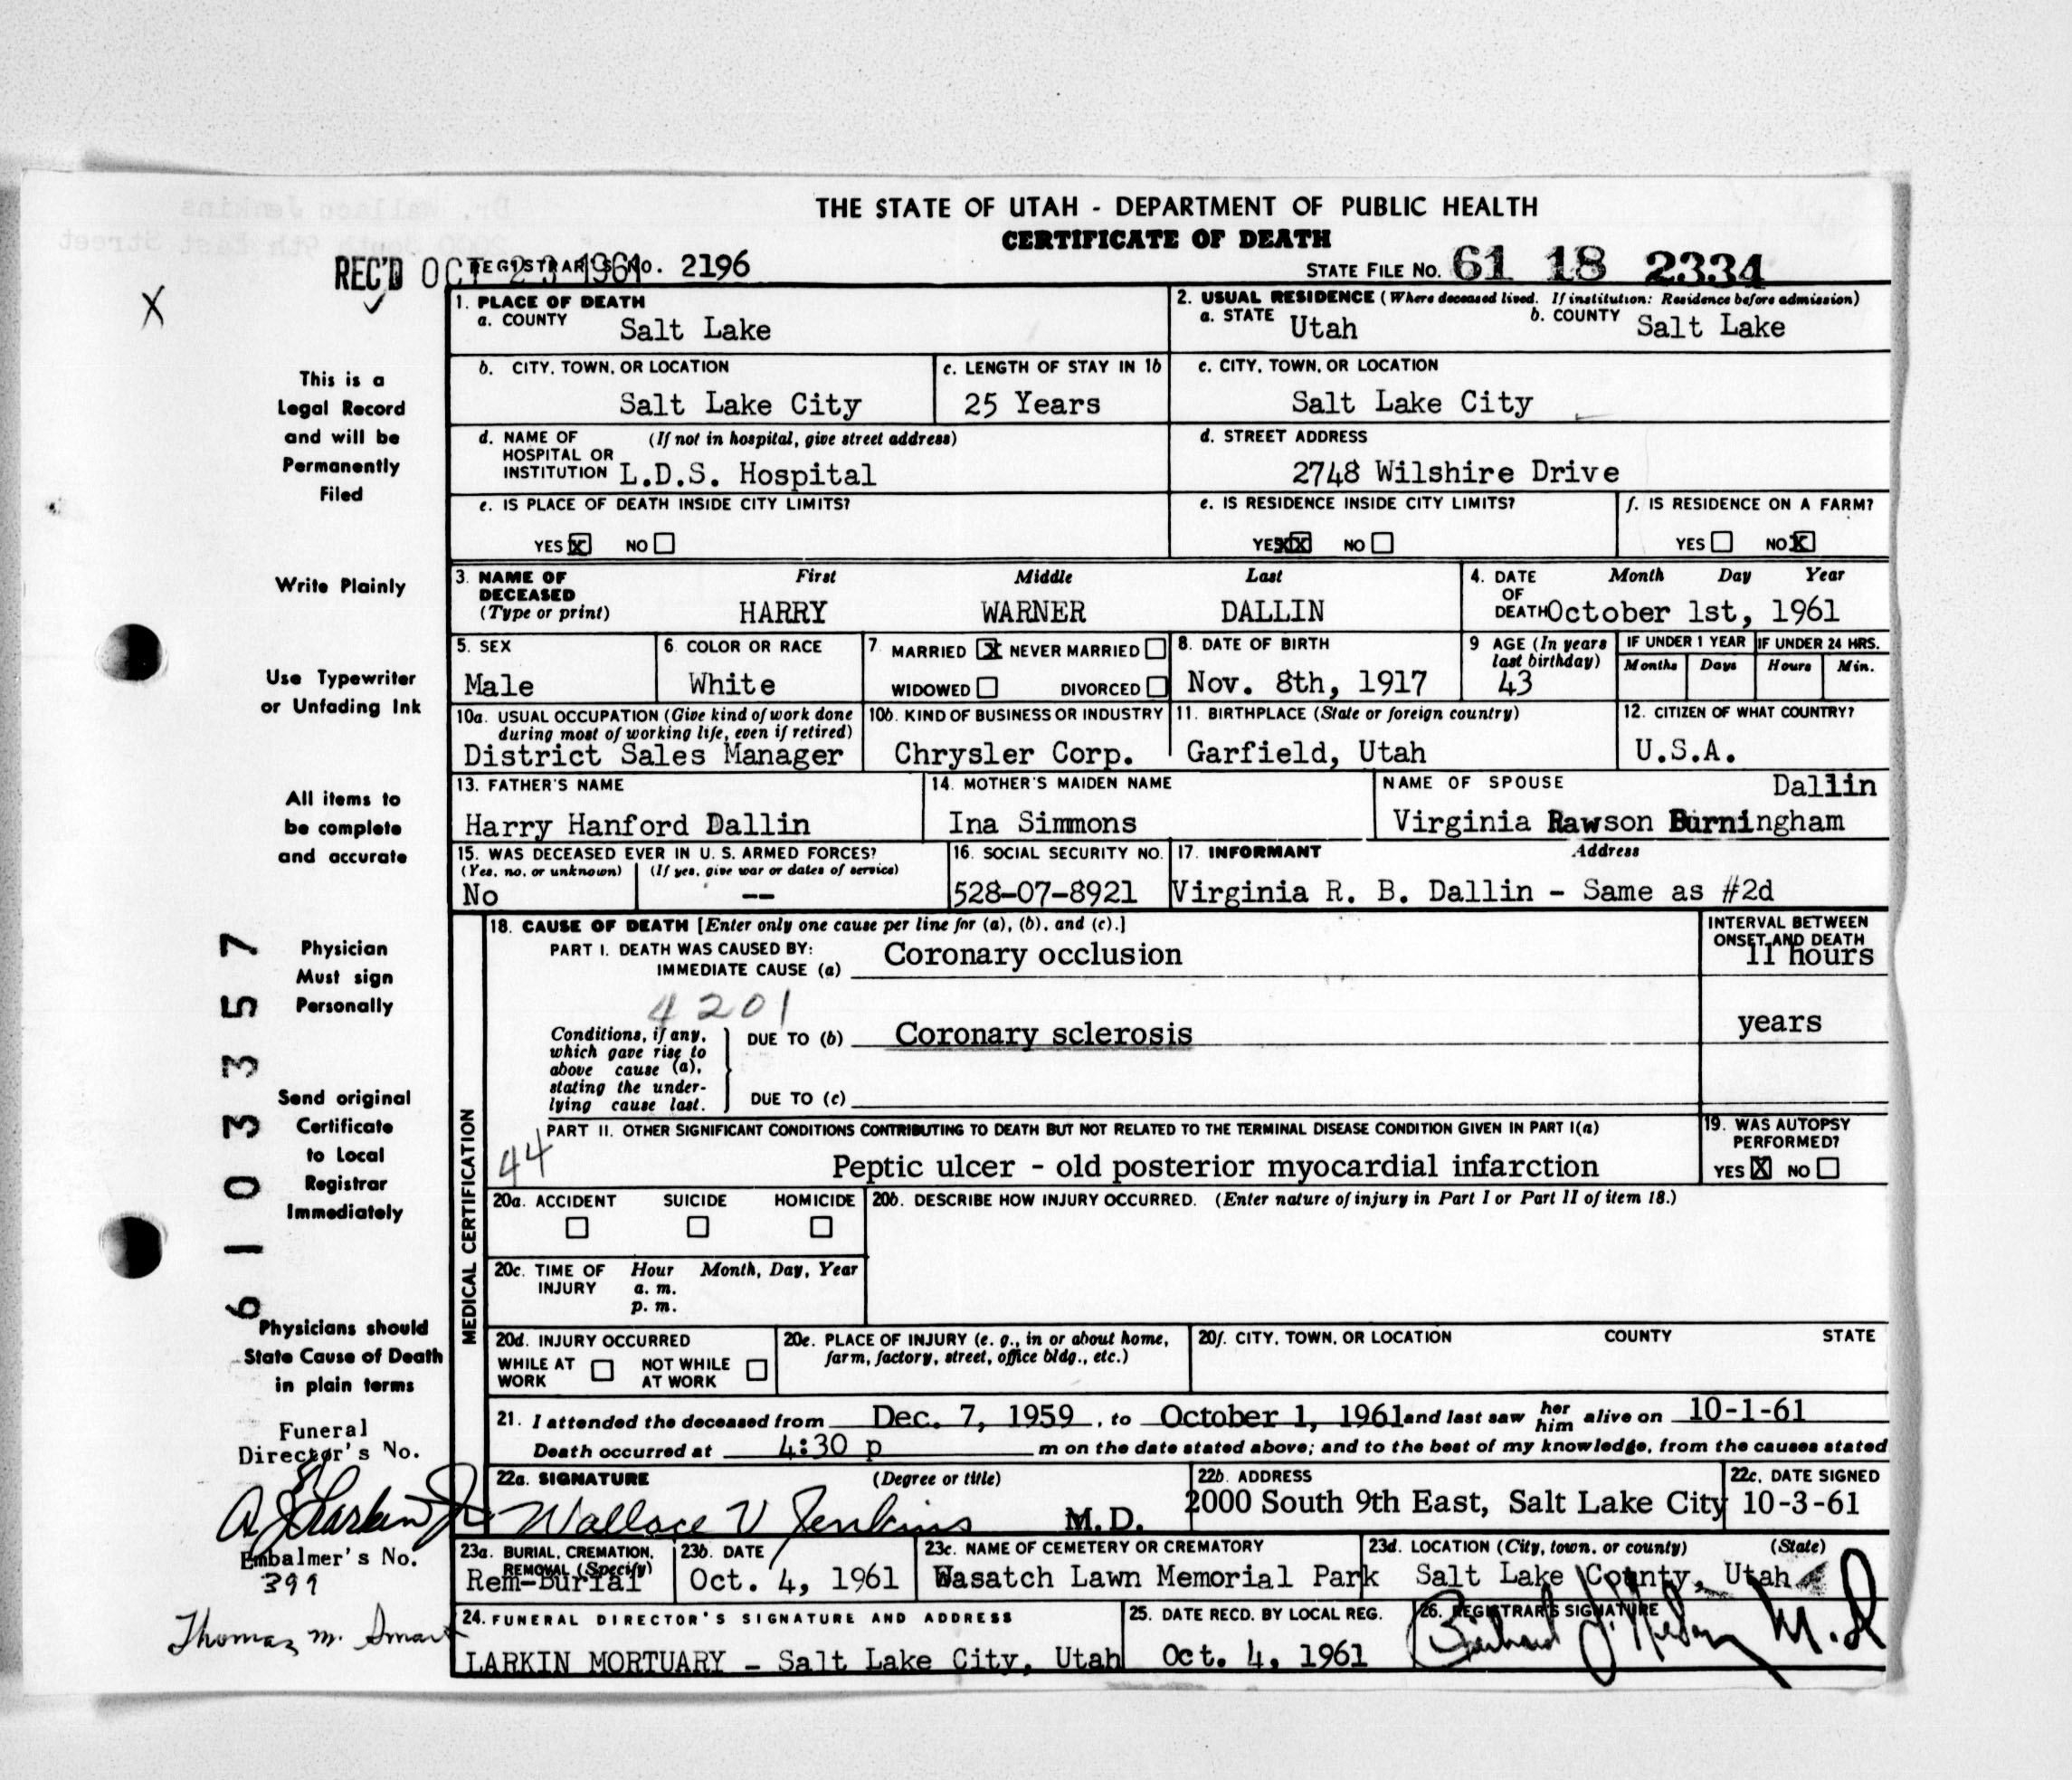 THE STATE OF UTAH - DEPARTMENT OF PUBLIC HEALTH
CERTIFICATE OF DEATH
REC'D OCT 23 1961 REGISTRAR'S NO. 2196 STATE FILE No. 61 18 2334
X
1. PLACE OF DEATH
a. COUNTY Salt Lake
2. USUAL RESIDENCE (Where deceased lived. If institution: Residence before admission)
a. STATE Utah b. COUNTY Salt Lake
b. CITY, TOWN, OR LOCATION
Salt Lake City
c. LENGTH OF STAY IN 1b
25 Years
c. CITY, TOWN, OR LOCATION
Salt Lake City
d. NAME OF (If not in hospital, give street address)
HOSPITAL OR
INSTITUTION L.D.S. Hospital
d. STREET ADDRESS
2748 Wilshire Drive
e. IS PLACE OF DEATH INSIDE CITY LIMITS?
YES X NO
e. IS RESIDENCE INSIDE CITY LIMITS?
YES XX NO
f. IS RESIDENCE ON A FARM?
YES NO X
3. NAME OF DECEASED (Type or print)
First Middle Last
HARRY WARNER DALLIN
4. DATE OF DEATH Month Day Year
October 1st, 1961
5. SEX
Male
6. COLOR OR RACE
White
7. MARRIED X NEVER MARRIED
WIDOWED DIVORCED
8. DATE OF BIRTH
Nov. 8th, 1917
9 AGE (In years last birthday)
43
IF UNDER 1 YEAR
Months Days
IF UNDER 24 HRS.
Hours Min.
10a. USUAL OCCUPATION (Give kind of work done
during most of working life, even if retired)
District Sales Manager
10b. KIND OF BUSINESS OR INDUSTRY
Chrysler Corp.
11. BIRTHPLACE (State or foreign country)
Garfield, Utah
12. CITIZEN OF WHAT COUNTRY?
U.S.A.
13. FATHER'S NAME
Harry Hanford Dallin
14. MOTHER'S MAIDEN NAME
Ina Simmons
NAME OF SPOUSE Dallin
Virginia Rawson Burningham
15. WAS DECEASED EVER IN U. S. ARMED FORCES?
(Yes, no, or unknown) (If yes, give war or dates of service)
No --
16. SOCIAL SECURITY NO.
528-07-8921
17. INFORMANT Address
Virginia R. B. Dallin - Same as #2d
MEDICAL CERTIFICATION
18. CAUSE OF DEATH [Enter only one cause per line for (a), (b), and (c).]
PART I. DEATH WAS CAUSED BY:
IMMEDIATE CAUSE (a) Coronary occlusion
INTERVAL BETWEEN
ONSET AND DEATH
11 hours
4201
Conditions, if any,
which gave rise to
above cause (a),
stating the under-
lying cause last.
DUE TO (b) Coronary sclerosis
years
DUE TO (c)
PART II. OTHER SIGNIFICANT CONDITIONS CONTRIBUTING TO DEATH BUT NOT RELATED TO THE TERMINAL DISEASE CONDITION GIVEN IN PART I(a)
44
Peptic ulcer - old posterior myocardial infarction
19. WAS AUTOPSY
PERFORMED?
YES X NO
20a. ACCIDENT SUICIDE HOMICIDE
20b. DESCRIBE HOW INJURY OCCURRED. (Enter nature of injury in Part I or Part II of item 18.)
20c. TIME OF INJURY Hour Month, Day, Year
a. m.
p. m.
20d. INJURY OCCURRED
WHILE AT WORK NOT WHILE AT WORK
20e. PLACE OF INJURY (e. g., in or about home,
farm, factory, street, office bldg., etc.)
20f. CITY, TOWN, OR LOCATION COUNTY STATE
21. I attended the deceased from Dec. 7, 1959, to October 1, 1961 and last saw her him alive on 10-1-61
Death occurred at 4:30 p m on the date stated above; and to the best of my knowledge, from the causes stated
22a. SIGNATURE (Degree or title)
Wallace V Jenkins M.D.
22b. ADDRESS
2000 South 9th East, Salt Lake City
22c. DATE SIGNED
10-3-61
23a. BURIAL, CREMATION,
REMOVAL (Specify)
Rem-Burial
23b. DATE
Oct. 4, 1961
23c. NAME OF CEMETERY OR CREMATORY
Wasatch Lawn Memorial Park
23d. LOCATION (City, town, or county) (State)
Salt Lake County, Utah
24. FUNERAL DIRECTOR'S SIGNATURE AND ADDRESS
LARKIN MORTUARY - Salt Lake City, Utah
25. DATE RECD. BY LOCAL REG.
Oct. 4, 1961
26. REGISTRAR'S SIGNATURE
M.D
This is a
Legal Record
and will be
Permanently
Filed
Write Plainly
Use Typewriter
or Unfading Ink
All items to
be complete
and accurate
Physician
Must sign
Personally
Send original
Certificate
to Local
Registrar
Immediately
Physicians should
State Cause of Death
in plain terms
61 03357
Funeral
Director's No.
A J Larkin Jr
Embalmer's No.
399
Thomas M. Smart